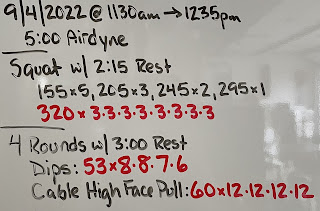 9/4/2022 @ 1130am → 1235pm
5:00 Airdyne
Squat w/ 2:15 Rest
155x5, 205x3, 245x2, 295x1
320x3·3·3·3·3·3·3·3
4 Rounds w/ 3:00 Rest
Dips: 53x8·8·7·6
Cable High Face Pull: 60x12·12·12·12